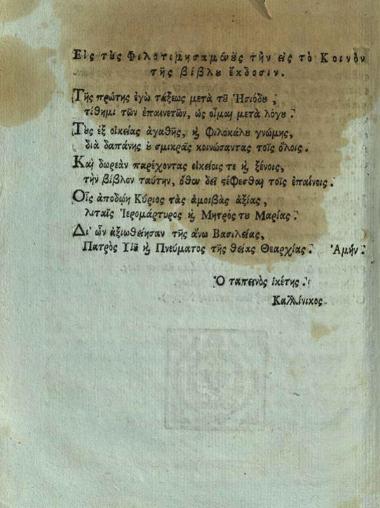 Εἰς τοὺς Φιλοτιμησαμένους τὴν εἰς τὸ Κοινὸν
τῆς βίβλου ἔκδοσιν.
Τῆς πρώτης ἐγὼ τάξεως μετὰ τοῦ Ἡσιόδου,
τίθημι τῶν ἐπαινετῶν, ὡς οἶμαι μετὰ λόγου.
Τοὺς ἐξ οἰκείας ἀγαθῆς, ϗ Φιλοκάλου γνώμης,
διὰ δαπάνης οὐ σμικρᾶς κοινώσαντας τοῖς ὅλοις.
Καὶ δωρεὰν παρέχοντας οἰκείοις τε ϗ ξένοις,
τὴν βίβλον ταύτην, ὅθεν δεῖ στέφεσθαι τοῖς ἐπαίνοις.
Οἷς ἀποδῴη Κύριος τὰς ἀμοιβὰς ἀξίας,
λιταῖς Ἱερομάρτυρος ϗ Μητρὸς του Μαρίας.
Δι' ὧν ἀξιωθείησαν τῆς ἄνω Βασιλείας,
Πατρὸς Υἱοῦ ϗ Πνεύματος τῆς θείας Θεαρχίας. Ἀμήν.
Ὁ ταπεινὸς ἱκέτης.
Καλλίνικος